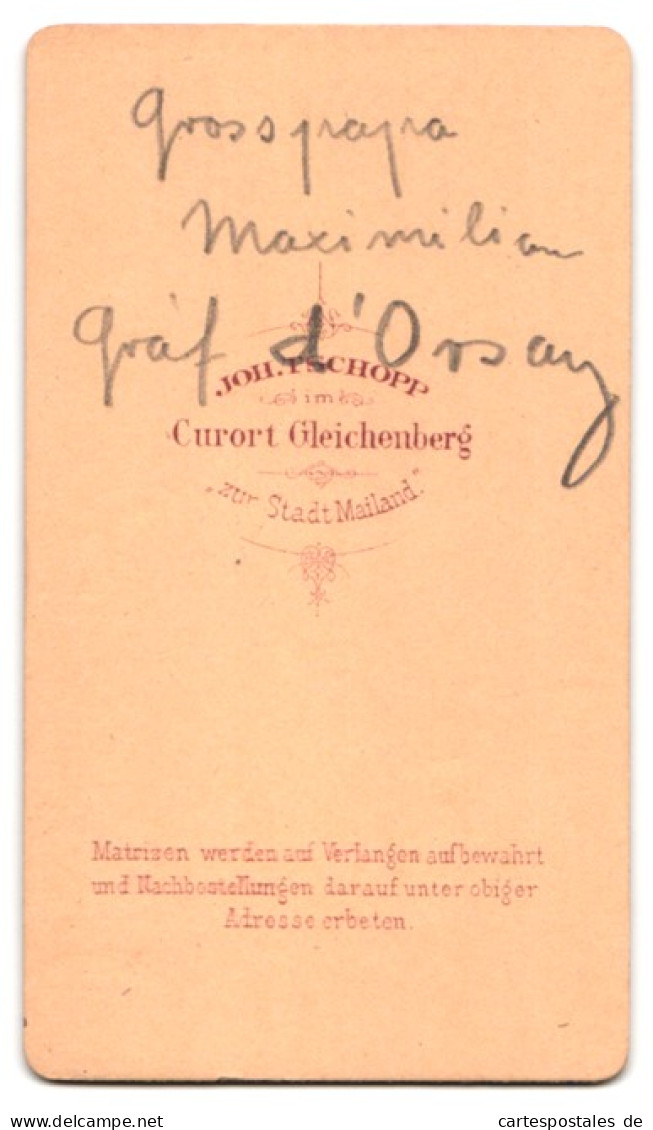 Grosspapa
Maximilian
Graf d'Orsay
JOH. TSCHOPP
im
Curort Gleichenberg
„zur Stadt Mailand."
Matrizen werden auf Verlangen aufbewahrt
und Nachbestellungen darauf unter obiger
Adresse erbeten.
www.delcampe.net
cartespostales de